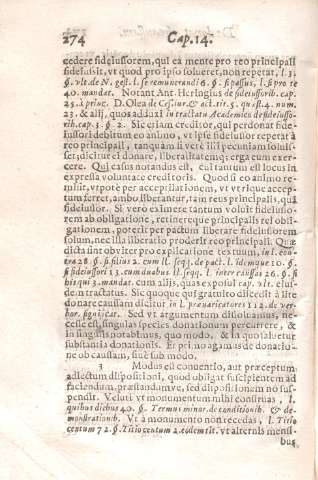 274 Cap. 14.
cedere fideiussorem, qui ea mente pro reo principali
fideiussit, vt quod pro ipso solueret, non repetat, l. 3.
§. vlt. de N. gest. l. si remunerandi 6. §. si passus, l. si pro te
40. mandat. Notant Ant. Heringius de fideiussorib. cap.
25. à princ. D. Olea de Cessiur. & act. tit. 5. quæst. 4. num.
23. & alij, quos adduxi in tractatu Academico de fideiusso-
rib. cap. 3. §. 2. Sic etiam creditor, qui perdonat fide-
iussori debitum eo animo, vt ipse fideiussor repetat à
reo principali, tanquam si verè illi pecuniam soluis-
set; dicitur ei donare, liberalitatemq; erga eum exer-
cere. Qui casus notandus est, cui tantum est locus in
expressa voluntate creditoris. Quod si eo animo re-
misit, vtpotè per acceptilationem, vt vtrique accep-
tum ferret, ambo liberantur, tam reus principalis, quá
fideiussor. Si verò eximere tantum voluit fideiusso-
rem ab obligatione, retinereque principalis rei obli-
gationem, poterit per pactum liberare fideiussorem
solum, nec illa liberatio proderit reo principali. Quæ
dicta sunt obviter pro explicatione textuum, in l. con-
tra 28. §. si filius 2. cum ll. seqq. de pact. l. idemque 10. §.
si fideiussori 13. cum duabus ll. seqq. l. inter causas 26. §. si
his qui 3. mandat. cum alijs, quas exposui cap. vlt. eius-
dem tractatus. Sic quoque qui gratuito discedit à lite
donare caussam dicitur in l. præuaricatores 212. de ver-
bor. significat. Sed vt argumentum dissoluamus, ne-
cesse est, singulas species donationum percurrere, &
in singulis notabimus, quo modo, & in quo saluetur
substantia donationis. Et primo agamus de donatio-
ne ob caussam, siue sub modo.
3 Modus est conuentio, aut præceptum
adiectum dispositioni, quod obligat suscipientem ad
faciendum, præstandumve, sed dispositionem non su-
spendit. Veluti vt monumentum mihi construas, l.
quibus diebus 40. §. Termus minor. de conditionib. & de-
monstrationib. Vt à monumento non recedas, l. Titio
centum 72. §. Titio centum 2. eodem tit. vt alternis mensi-
bus